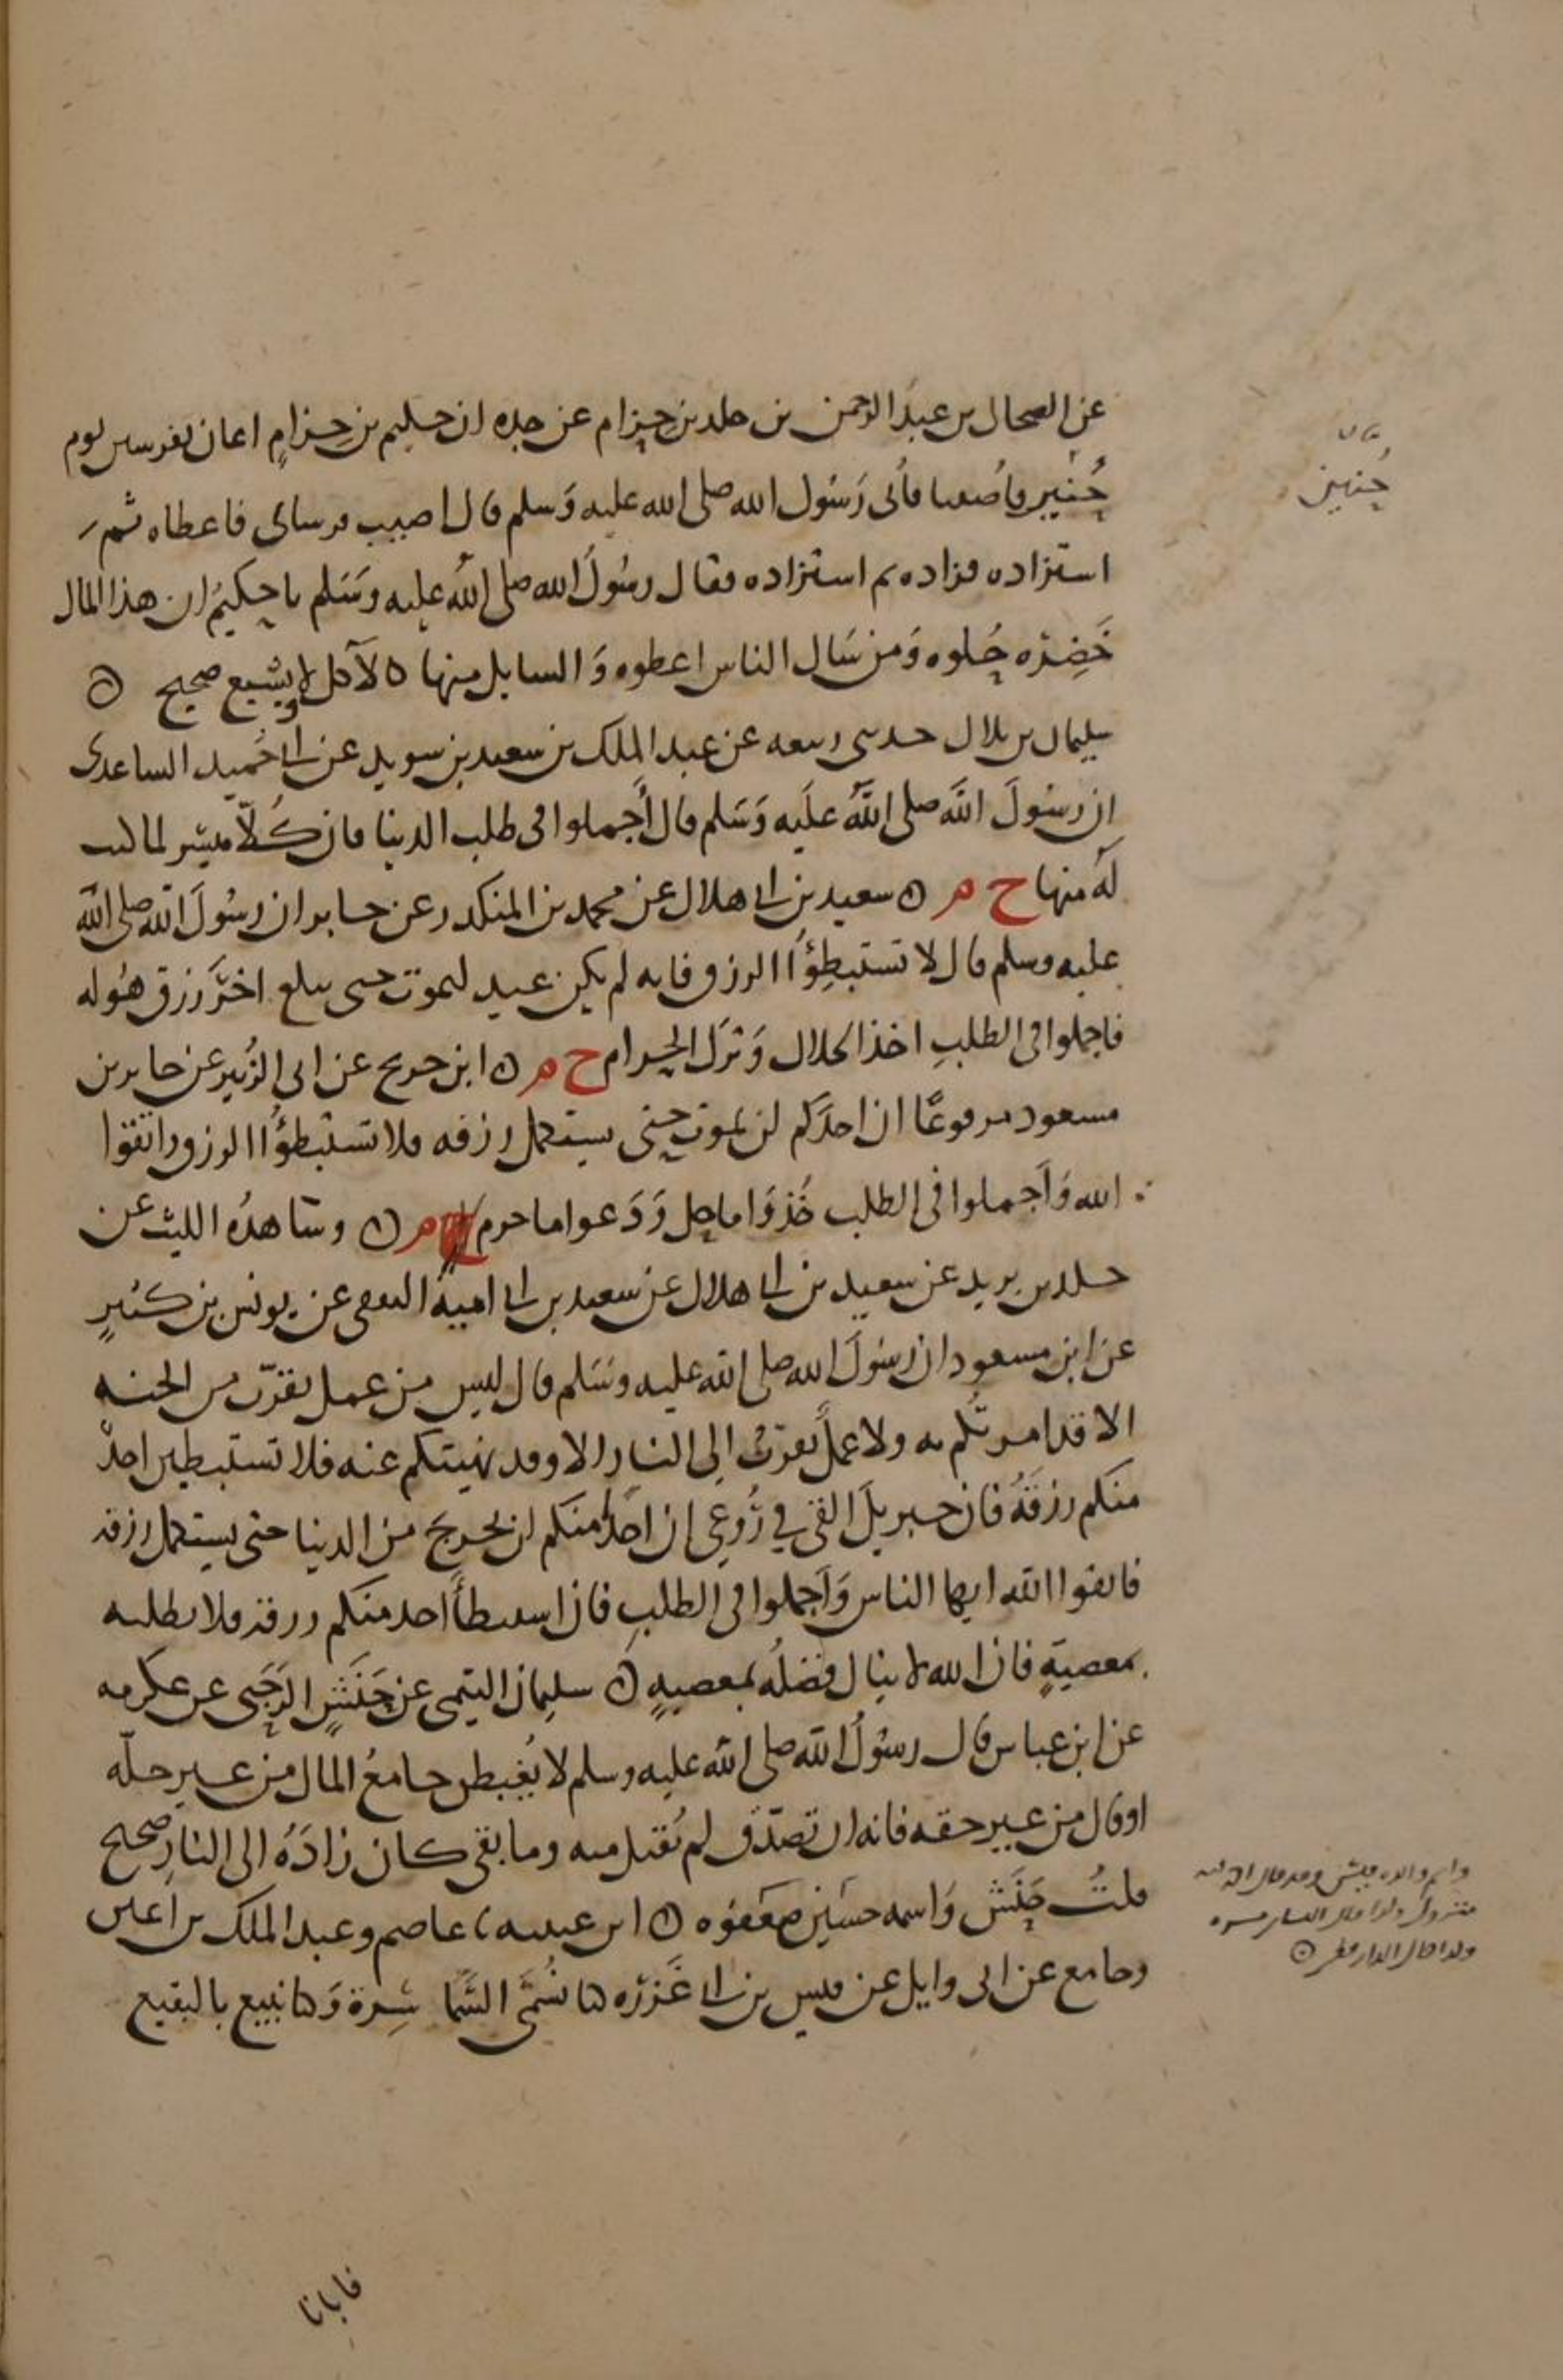 عن الضحاك بن عبد الرحمن بن خلد بن حزام عن جده ان حكيم بن حزام اعان بفرسين يوم
حُنين فأُصيبا فأتى رَسُول الله صلى الله عليه وَسلم فقال اصيب فرساى فاعطاه ثم
استزاده فزاده ثم استزاده فقال رسُولُ الله صلى اللهُ عليه وسَلم يا حكيمُ ان هذا المال
خَضِرَه حُلوه وَمن سَال الناس اعطوه وَالسايل منها كالآكل لا يشبع صحيح ن
سليمان بن بلال حدثنى ربيعه عن عبد الملك بن سعيد بن سويد عن ابى حُميد الساعدى
ان رسُولَ اللهَ صلى اللهُ علَيه وَسَلم قال أَجملوا فى طلب الدنيا فان كُلّاً ميسر لما كتب
لَه منها خ م ن سعيد بن ابى هلال عن محمد بن المنكدر عن جابر ان رسُولَ الله صلى الله
عليه وسلم قال لا تستبطِؤُا الرزق فانه لم يكن عبد ليموت حتى يبلغ اخرَ رزق هُوله
فاجملوا فى الطلبِ اخذ الحلال وَترك الحرام خ م ن ابن جريج عن ابى الزُبير عن جابر بن
مسعود مرفوعًا ان احدَكم لن يموت حتى يستكمل رزقه فلا تستبطؤُا الرزق واتقوا
الله وَأَجملوا فى الطلب خُذوَا ما حل وَدَعوا ما حرم م ن وشاهدُه الليث عن
خلد بن يزيد عن سعيد بن ابى هلال عن سعيد بن ابى امية الثقفى عن يونس بن كثيرٍ
عن ابن مسعود ان رسُولَ الله صلى الله عليه وسَلم قال ليس من عمل يقرّب من الجنه
الا قد امرتُكم به ولا عملٌ يقربُ الى النار الا وقد نهيتكم عنه فلا تستبطين احدٌ
منكم رزقَهُ فان جبريلَ القى في رُوعى ان احدًا منكم لن يخرج من الدنيا حتى يستكمل رزقه
فاتقوا الله ايها الناس وَأَجملوا فى الطلبِ فان استبطأَ احد منكم رزقه فلا يطلبه
بمعصيةٍ فان الله لا ينال فضلُه بمعصيهٍ ن سليمان التيمى عن حَنَشٍ الرَحَبى عن عكرمه
عن ابن عباس قال رسُولُ الله صلى الله عليه وسلم لا يُغبطن جامعُ المال من غير حلّه
او قال من غير حقه فانه ان تصدّق لم يُقبل منه وما بقى كان زادَهُ الى النارِ صحيح
قلتُ حَنَش وَاسمه حسَين ضعَفوُه ن ابن عيينه ثنا عاصم وعبد الملك بن اعين
وجامع عن ابى وايل عن قيس بن ابى غَرَزه كنا نُسَمَّى السَّمَا سِرة وَكنا نبيع بالبقيع
بيان
حُنين
واسم والده قيس وقد قال احمد انه
متروك وكذا قال النسائى مره
وكذا قال الدارقطنى ن
فاتانا